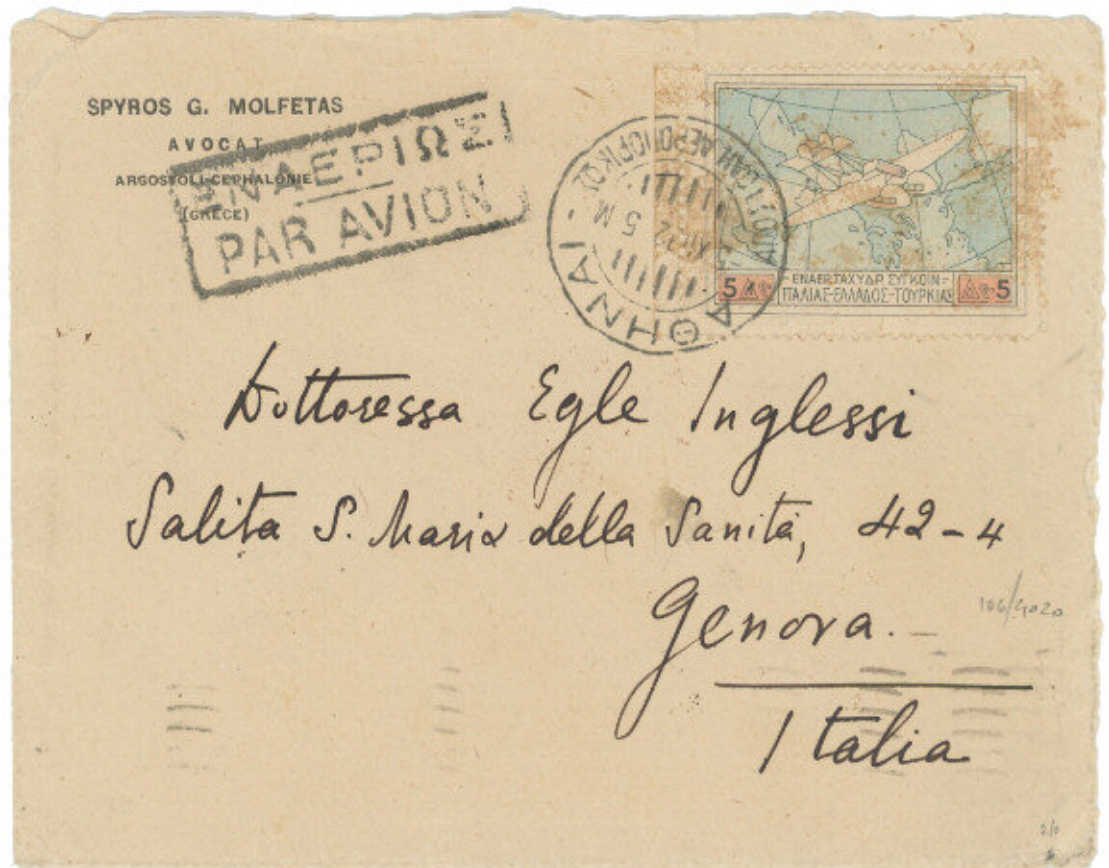 SPYROS G. MOLFETAS
AVOCAT
ARGOSTOLI-CEPHALONIE
(GRÈCE)
ΕΝΑΕΡΙΩΣ
PAR AVION
ΑΘΗΝΑΙ
5 M
ΕΝΑΕΡ ΤΑΧΥΔΡ ΣΥΓΚΟΙΝ-
5 ΔΡ ΙΤΑΛΙΑΣ-ΕΛΛΑΔΟΣ-ΤΟΥΡΚΙΑΣ ΔΡ 5
Dottoressa Egle Inglessi
Salita S. Maria della Sanità, 42-4
Genova.-
Italia